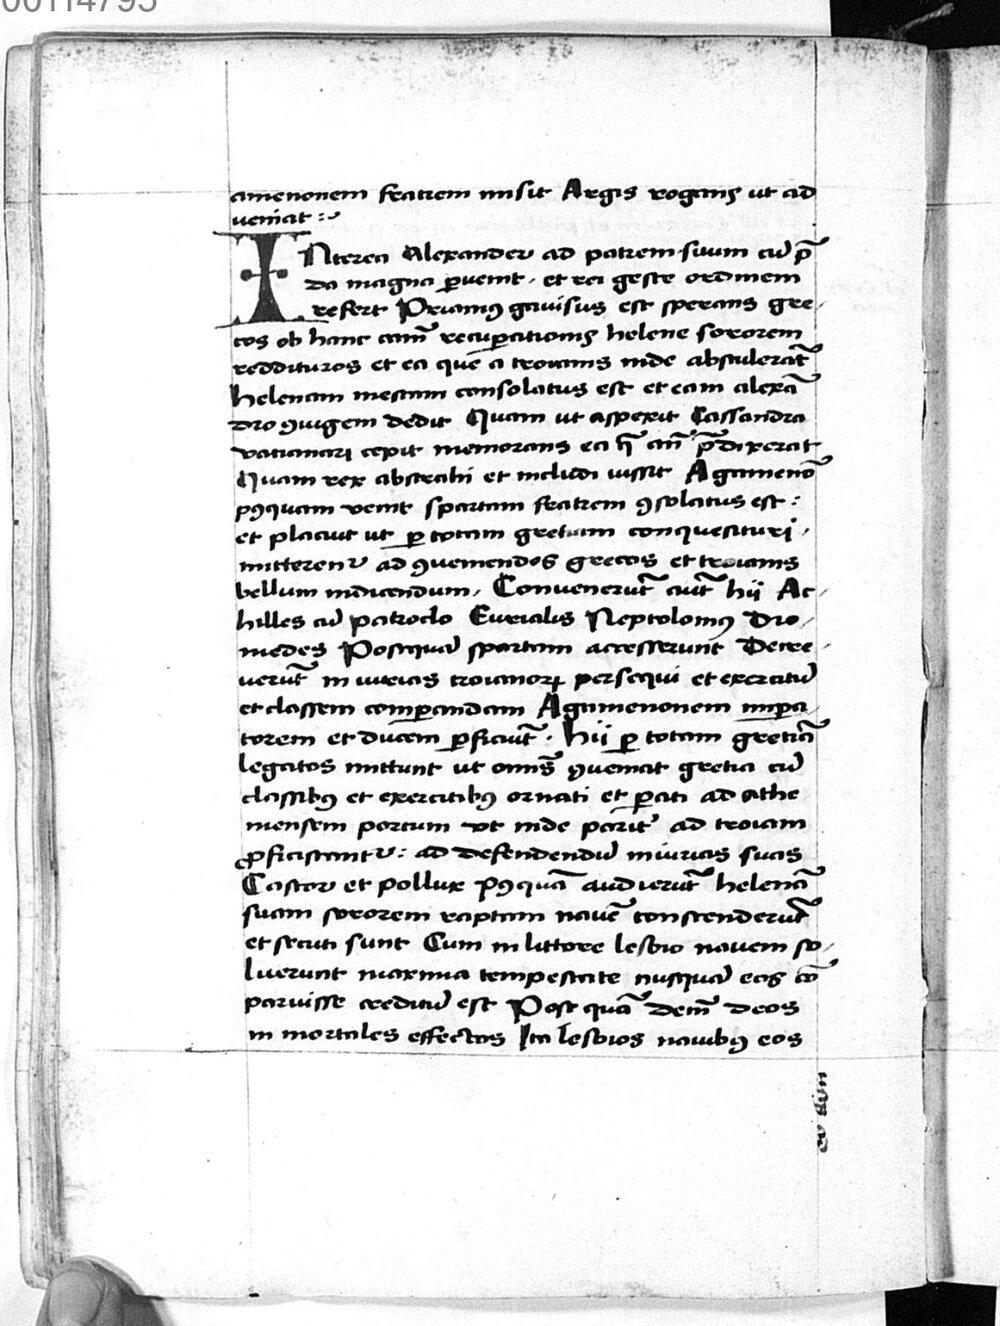 00114795
amenonem fratrem misit Argis rogans ut ad
ueniat :~
INterea Alexander ad patrem suum cū p̄
da magna ꝑuenit . et rei geste ordinem
refert Priamꝰ gauisus est sperans gre
cos ob hanc cam̄ recuꝑationis helene sororem
reddituros et ea que a troianis inde abstulerāt
helenam mestam consolatus est et eam alexā
dro ꝯiugem dedit Quam ut aspexit Cassandra
vaticinari cepit memorans ea q̄ an̄ p̄dixerat
Quam rex abstrahi et includi iussit Agamenō
pꝰquam venit spartam fratrem ꝯsolatus est :
et placuit ut ꝑ totam gretiam conquesituri
mitterent᷑ ad ꝯueniendos grecos et troianis
bellum indicendum . Conuenerūt aūt hij Ac
hilles cū patroclo Eurialis Neptolomꝰ Dio
medes Postquā spartam accesserunt Decre
uerūt iniurias troianoꝝ persequi et exercitū
et classem comꝑandam Agamenonem imꝑa
torem et ducem p̄ficiūt . hij ꝑ totam gretiā
legatos mittunt ut omn̄s ꝯueniat gretia cū
classibꝰ et exercitibꝰ ornati et ꝑati ad athe
niensem portum vt inde parit᷑ ad troiam
ꝓficiscant᷑ : ad defendendū iniurias suas
Castor et pollux pꝰquā audierūt helenā
suam sororem raptam nauē conscenderūt
et secuti sunt Cum in littore lesbio nauem so
luerunt maxima tempestate nusquā eos cō
paruisse creditū est Post quā dein̄ deos
in mortales effectos Ita lesbios nauibꝰ eos